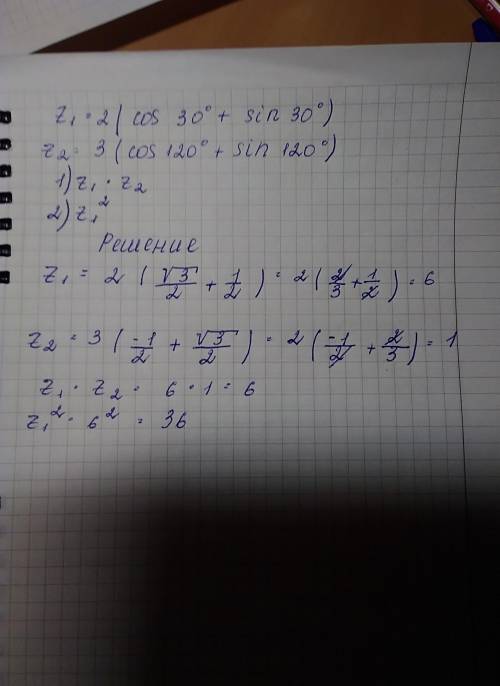 z₁ = 2 ( cos 30° + sin 30°)
z₂ = 3 (cos 120° + sin 120°)
1) z₁ · z₂
2) z₁²
Решение
z₁ = 2 ( √3/2 + 1/2 ) = 2 ( 2/3 + 1/2 ) = 6
z₂ = 3 ( -1/2 + √3/2 ) = 2 ( -1/2 + 2/3 ) = 1
z₁ · z₂ = 6 · 1 = 6
z₁² = 6² = 36